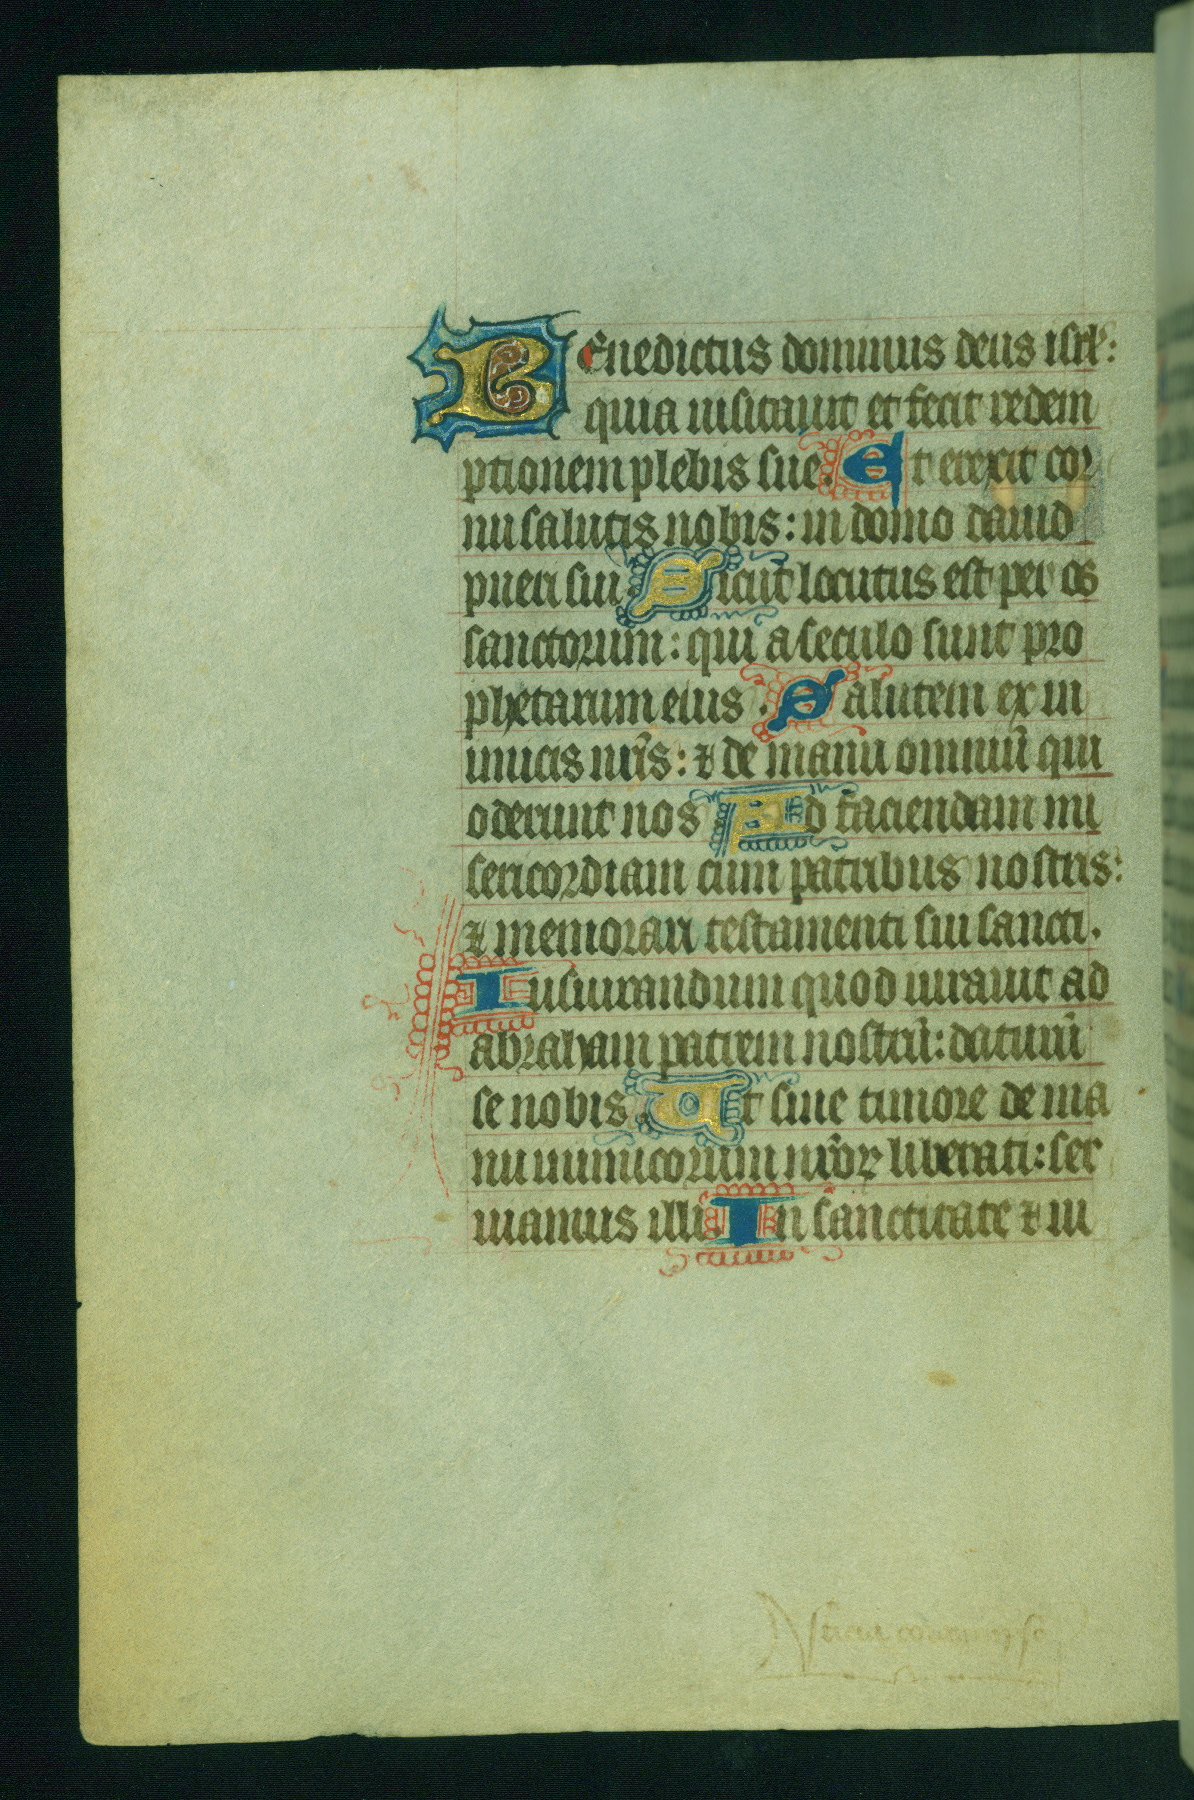 Benedictus dominus deus isrl':
quia uisitauit et fecit redem
ptionem plebis sue. Et erexit cor
nu salutis nobis: in domo dauid
pueri sui. Sicut locutus est per os
sanctorum: qui a seculo sunt pro
phetarum eius. Salutem ex in
imicis nr̄is: ⁊ de manu omniū qui
oderunt nos. Ad faciendam mi
sericordiam cum patribus nostris:
⁊ memorari testamenti sui sancti.
Iusiurandum quod iurauit ad
abraham patrem nostrū: daturū
se nobis. Ut sine timore de ma
nu inimicorum nr̄oꝝ liberati: ser
uiamus illi. In sanctitate ⁊ in